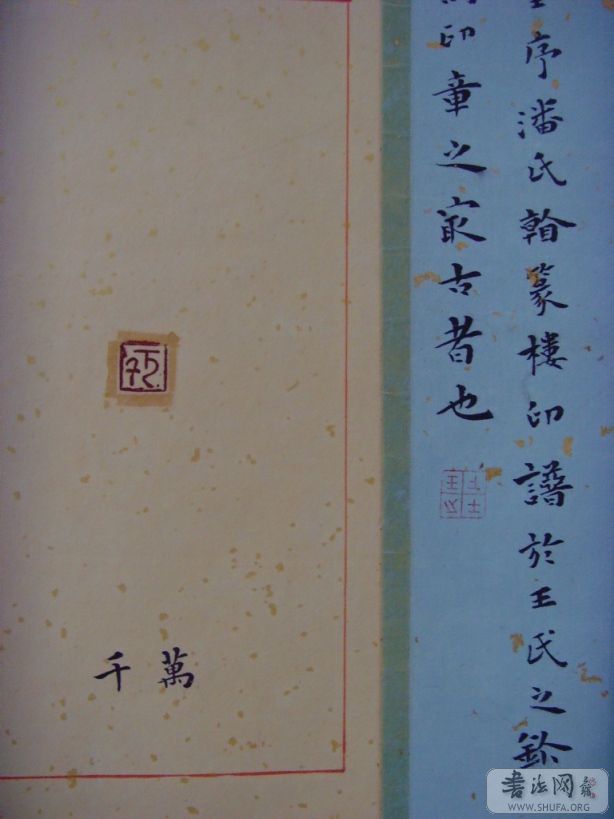 序潘氏翰篆樓印譜於王氏之鉥
印章之㝡古者也
萬千
書法网
WWW.SHUFA.ORG